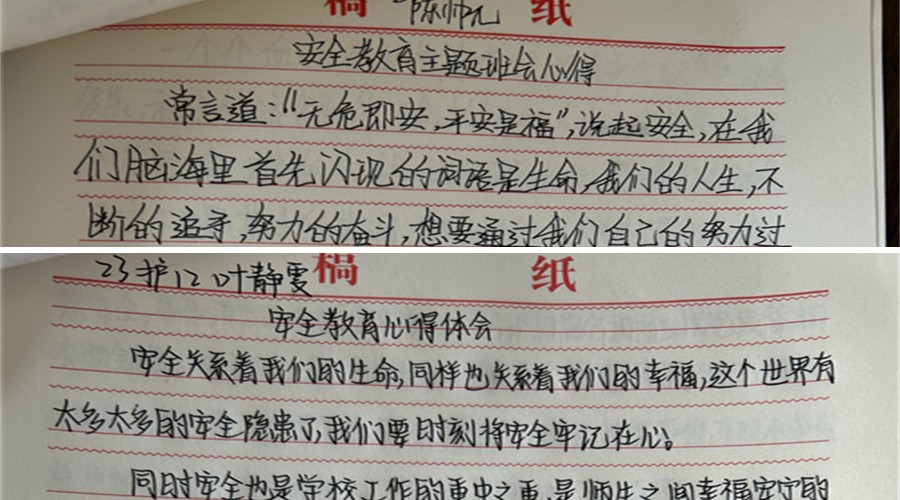 稿 陈师儿 纸
安全教育主题班会心得
常言道:"无危即安,平安是福",说起安全,在我
们脑海里首先闪现的词语是生命,我们的人生,不
断的追寻,努力的奋斗,想要通过我们自己的努力过
23护12 叶静雯 稿 纸
安全教育心得体会
安全关系着我们的生命,同样也关系着我们的幸福,这个世界有
太多太多的安全隐患了,我们要时刻将安全牢记在心。
同时安全也是学校工作的重中之重,是师生之间幸福安宁的